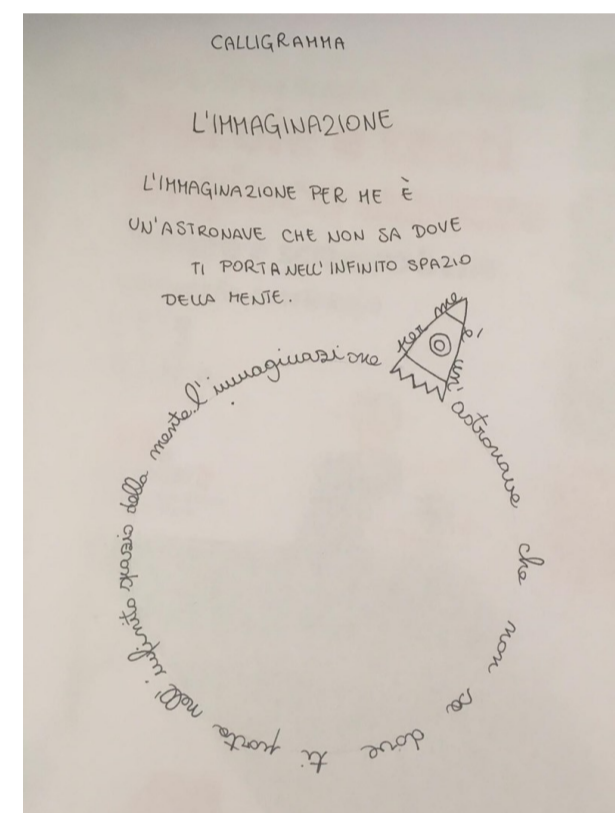 CALLIGRAMMA
L'IMMAGINAZIONE
L'IMMAGINAZIONE PER ME È
UN'ASTRONAVE CHE NON SA DOVE
TI PORTA NELL'INFINITO SPAZIO
DELLA MENTE.
l'immaginazione per me è un'astronave che non sa dove ti porta nell'infinito spazio della mente